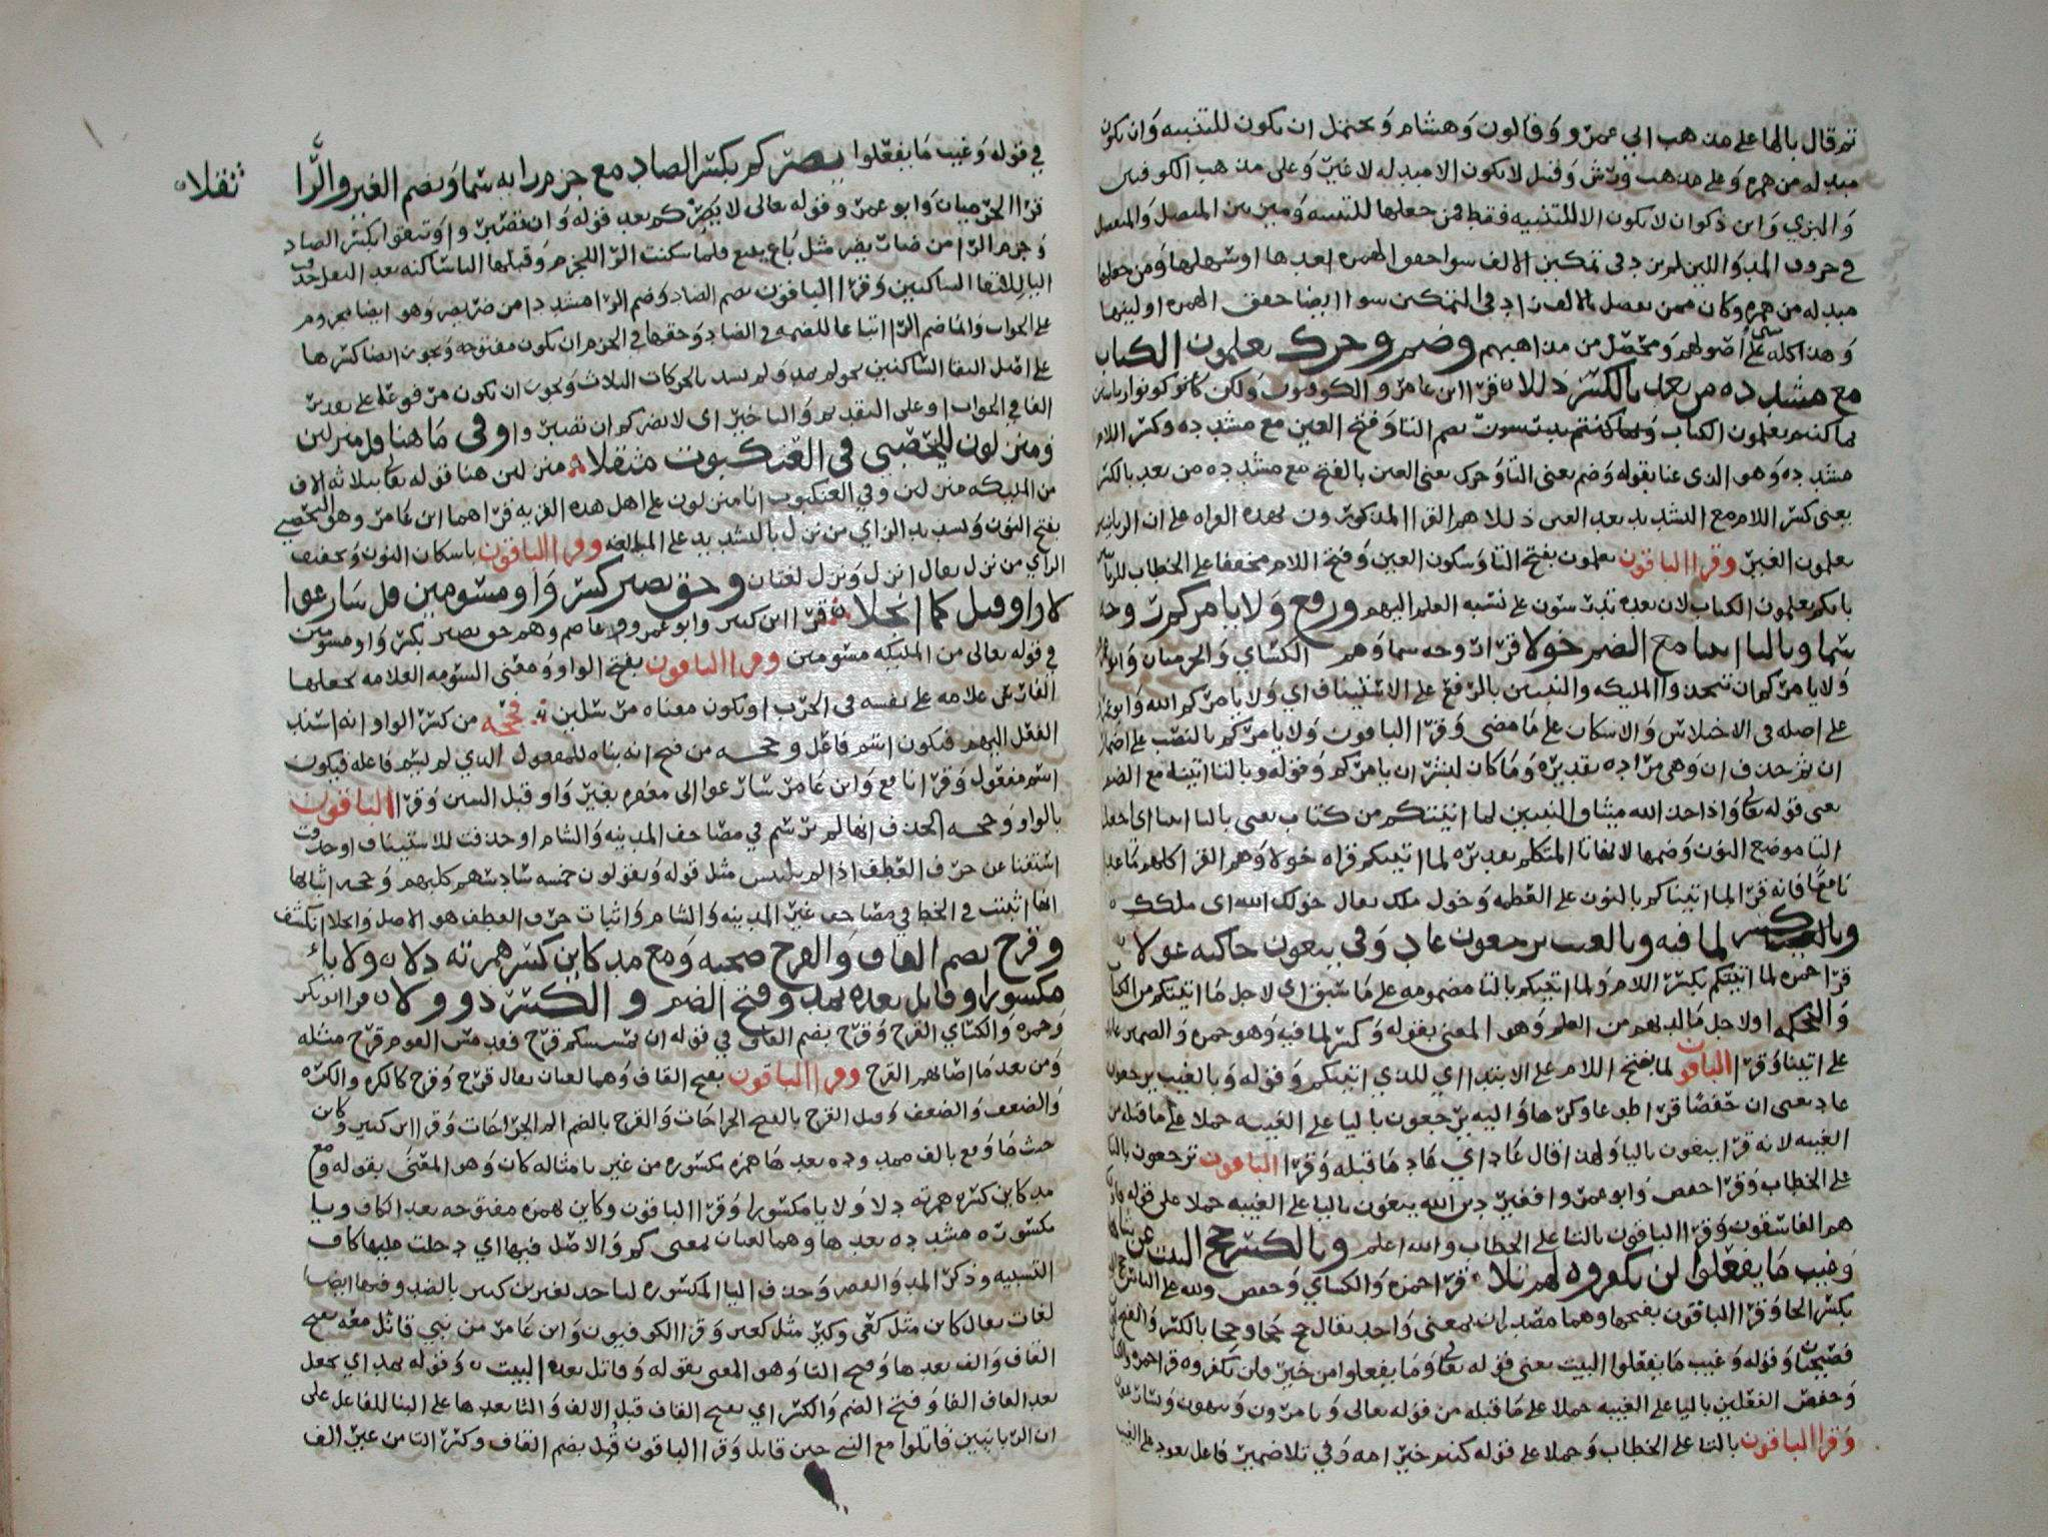 ثم قال بالها على مذهب ابي عمرو وقالون وهشام ويحتمل ان يكون للتنبيه وان يكون
مبدله من همزه وعلى مذهب ورش وقنبل لا يكون الا مبدله لا غير وعلى مذهب الكوفيين
والبزي وابن ذكوان لا يكون الا للتنبيه فقط فمن جعلها للتنبيه وميز بين المنفصل والمتصل
في حروف المد واللين لم يزد في تمكين الالف سوا حقق الهمزه بعدها او سهلها ومن جعلها
مبدله من همزه وكان ممن يفصل بالالف زاد في التمكين سوا ايضا حقق الهمزه او لينها
وهذا كله على اصولهم ومحصل من مذاهبهم وضم وحرك تعلمون الكتاب
مع مشدده من بعد بالكسر ذللا قرا ابن عامر والكوفيون ولكن كونوا ربانيين
بما كنتم تعلمون الكتاب وبما كنتم تدرسون بضم التا وفتح العين مع مشدده وكسر اللام
مشدده وهو الذي عنا بقوله وضم يعنى التا وحرك يعنى العين بالفتح مع مشدده من بعد بالكسر
يعنى كسر اللام مع التشديد بعد العين ذللا هم القرا المذكورون بهذه القراه على ان الربانيين
يعلمون الغير وقرا الباقون تعلمون بفتح التا وسكون العين وفتح اللام مخففا على الخطاب
بانكم تعلمون الكتاب لان بعده تدرسون على نسبه العلم اليهم ورفع ولا يامركم روحه
سما وبالتا اتينا مع الضم خولا قرا روحه سما وهم الكسائي والحرميان وابو
ولا يامركم ان تتخذوا المليكه والنبيين بالرفع على الاستيناف اي ولا يامركم الله وابو
على اصله في الاختلاس والاسكان على ما مضى وقرا الباقون ولا يامركم بالنصب على
ان ثم حذف ان وهي مراده تقديره وما كان لبشر ان يامركم وقوله وبالتا اتينا مع الضم
يعنى قوله تعالى واذ اخذ الله ميثاق النبيين لما اتيتكم من كتاب يعنى بالتا اتينا اي اجعل
التا موضع النون وضمها لانها تا المتكلم تقديره لما اتيتكم قراه خولا وهم القرا كلهم ما عدا
نافعا فانه قرا لما اتيناكم بالنون على العظمه وخول ملك يقال خولك الله اي ملكك
وكسر لما فيه وبالغيب ترجعون عاد وفي تبغون حاكيه عولا
قرا حمزه لما اتيتكم بكسر اللام ولما اتيتكم بالتا مضمومه على ما سبق اي لاجل ما اتيتكم من الكتاب
والحكمه اولاجل ما لديهم من العلم وهو المعنى بقوله وكسر لما فيه وهو حمزه والضمير عائد
على اتينا وقرا الباقون لما بفتح اللام على الابتدا اي للذي اتيتكم وقوله وبالغيب ترجعون
عاد يعنى ان حفصا قرا طوعا وكرها واليه يرجعون باليا على الغيبه حملا على ما قبله من
الغيبه لانه قرا يبغون باليا ولهذا قال عاد اي عاد ما قبله وقرا الباقون ترجعون بالتا
على الخطاب وقرا حفص وابو عمرو افغير دين الله يبغون باليا على الغيبه حملا على قوله
هم الفاسقون وقرا الباقون بالتا على الخطاب والله اعلم وبالكسر حج البيت عن
وغيب ما يفعلوا لن يكفروه لهم تلا قرا حمزه والكسائي وحفص ولله على الناس حج
بكسر الحا وقرا الباقون بفتحها وهما مصدران بمعنى واحد يقال حج حجا وحجا بالكسر والفتح
فصيحتان وقوله وغيب ما يفعلوا البيت يعنى قوله تعالى وما يفعلوا من خير فلن يكفروه قرا حمزه
وحفص الفعلين باليا على الغيبه حملا على ما قبله من قوله تعالى ويامرون وينهون
وقرا الباقون بالتا على الخطاب وحملا على قوله كنتم خير امه وفي تلا ضمير فاعل يعود على الغيب
في قوله وغيب ما يفعلوا يضركم بكسر الصاد مع جزم رايه سما وضم الغير والرا
ثقلا
قرا الحرميان وابو عمرو قوله تعالى لا يضركم بعد قوله وان تصبروا وتتقوا بكسر الضاد
وجزم الرا من ضار يضير مثل باع يبيع فلما سكنت الرا للجزم وقبلها اليا ساكنه بعد النقل حذفت
اليا لالتقا الساكنين وقرا الباقون بضم الضاد وضم الرا مشددا من ضر يضر وهو ايضا مجزوم
على الجواب وانما ضم الرا اتباعا للضمه في الضاد وحقها في الجزم ان يكون مفتوحه ويجوز ايضا كسرها
على اصل التقا الساكنين نحو لم يمد ولم يشد بالحركات الثلاث ويجوز ان تكون مرفوعه على تقدير
الفا في الجواب او على التقديم والتاخير اي لا يضركم ان تصبروا وفي ما هنا قل منزلين
ومنزلون لليحصبي في العنكبوت مثقلا منزلين هنا قوله تعالى بثلاثه الاف
من المليكه منزلين وفي العنكبوت انا منزلون على اهل هذه القريه قراهما ابن عامر وهو اليحصبي
بفتح النون وتشديد الزاي من نزل بالتشديد على المبالغه وقرا الباقون باسكان النون وتخفيف
الزاي من نزل يقال انزل ونزل لغتان وحق نصير كسر واو مسومين قل سارعوا
لا واو قبل كما انجلا قرا ابن كثير وابو عمرو وعاصم وهم حق نصير بكسر واو مسومين
في قوله تعالى من المليكه مسومين وقرا الباقون بفتح الواو ومعنى السومه العلامه يجعلها
الفارس علامه على نفسه في الحرب او يكون معناه مرسلين فحجه من كسر الواو انه اسند
الفعل اليهم فيكون اسم فاعل وحجه من فتح انه بناه للمفعول الذي لم يسم فاعله فيكون
اسم مفعول وقرا نافع وابن عامر سارعوا الى مغفره بغير واو قبل السين وقرا الباقون
بالواو وحجه الحذف انها لم ترسم في مصاحف المدينه والشام او حذفت للاستيناف او حذفت
استغنا عن حرف العطف اذا لم يلبس مثل قوله ويقولون خمسه سادسهم كلبهم وحجه اثباتها
انها اثبتت في الخط في مصاحف غير المدينه والشام واثبات حرف العطف هو الاصل وانجلا انكشف
وقرح بضم القاف والقرح صحبه ومع مد كاين كسر همزته دلا ولا ياء
مكسورا وقاتل بعده يمد وفتح الضم والكسر ذو ولا قرا ابو بكر
وحمزه والكسائي القرح وقرح بضم القاف في قوله ان يمسسكم قرح فقد مس القوم قرح مثله
ومن بعد ما اصابهم القرح وقرا الباقون بفتح القاف وهما لغتان يقال قرح وقرح كالكره والكره
والضعف والضعف وقيل القرح بالفتح الجراحات والقرح بالضم الم الجراحات وقرا ابن كثير وكاين
حيث ما وقع بالف ممدوده بعدها همزه مكسوره من غير يا مثاله كان وهو المعنى بقوله ومع
مد كاين كسر همزته دلا ولا يا مكسورا وقرا الباقون وكاين بهمزه مفتوحه بعد الكاف ويا
مكسوره مشدده بعدها وهما لغتان بمعنى كم والاصل فيها اي دخلت عليها كاف
التشبيه وذكر المد والقصر وحذف اليا المكسوره لياخذ لغير ابن كثير بالضد وفيها ايضا
لغات يقال كاين مثل كعي وكين مثل كعين وقرا الكوفيون وابن عامر من نبي قاتل معه بفتح
القاف والف بعدها وفتح التا وهو المعنى بقوله وقاتل بعده البيت وقوله يمد اي يجعل
بعد القاف الفا وفتح الضم والكسر اي بفتح القاف قبل الالف والتا بعدها على البنا للفاعل على
ان الربانيين قاتلوا مع النبي حين قاتل وقرا الباقون قتل بضم القاف وكسر التا من غير الف